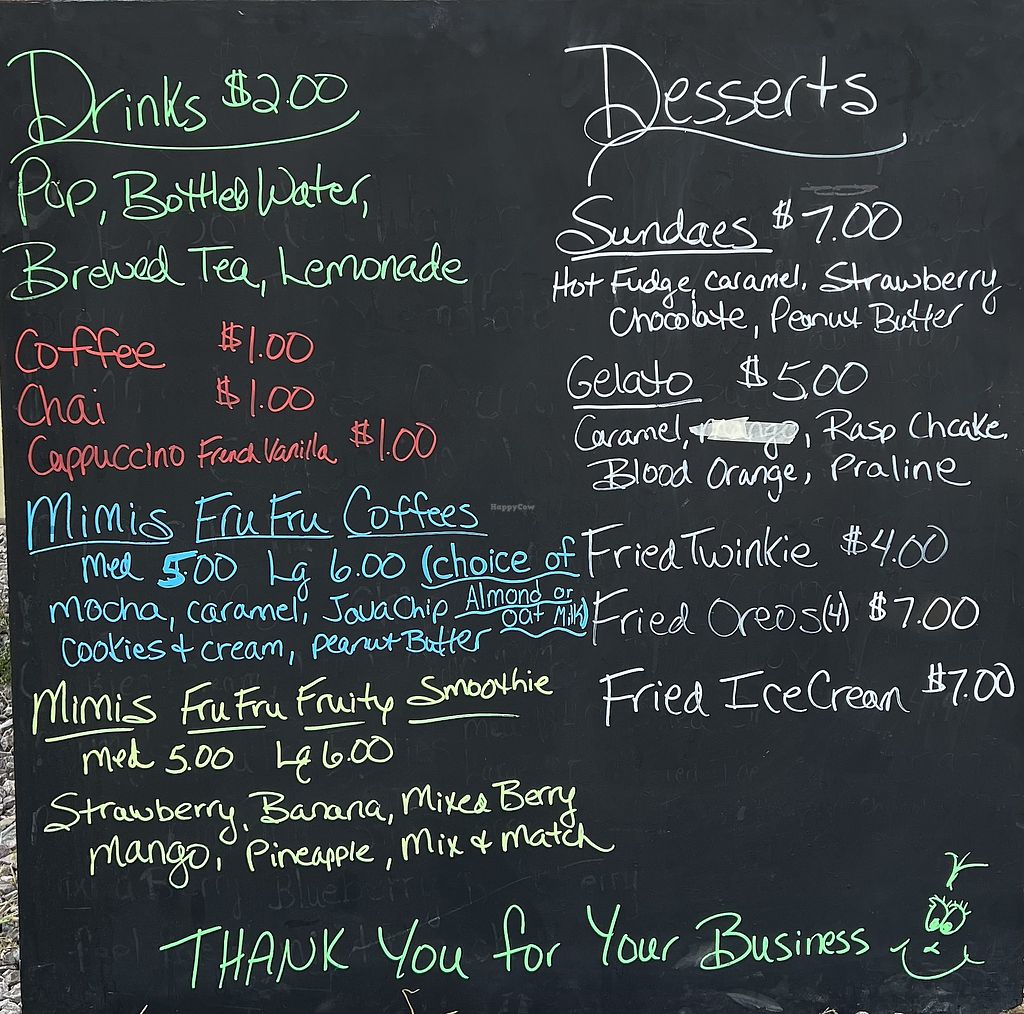 Drinks $2.00
Pop, Bottled Water,
Brewed Tea, Lemonade
Coffee $1.00
Chai $1.00
Cappuccino French Vanilla $1.00
Mimis FruFru Coffees
med 5.00 Lg 6.00 (choice of
Almond or
oat Milk)
mocha, caramel, JavaChip
cookies & cream, peanut Butter
Mimis FruFru Fruity Smoothie
med 5.00 Lg 6.00
Strawberry, Banana, Mixed Berry
Mango, Pineapple, Mix & Match
Desserts
Sundaes $7.00
Hot Fudge, caramel, Strawberry
Chocolate, Peanut Butter
Gelato $5.00
Caramel, , Rasp Chcake,
Blood Orange, Praline
Fried Twinkie $4.00
Fried Oreos(4) $7.00
Fried Ice Cream $7.00
THANK You for Your Business
HappyCow